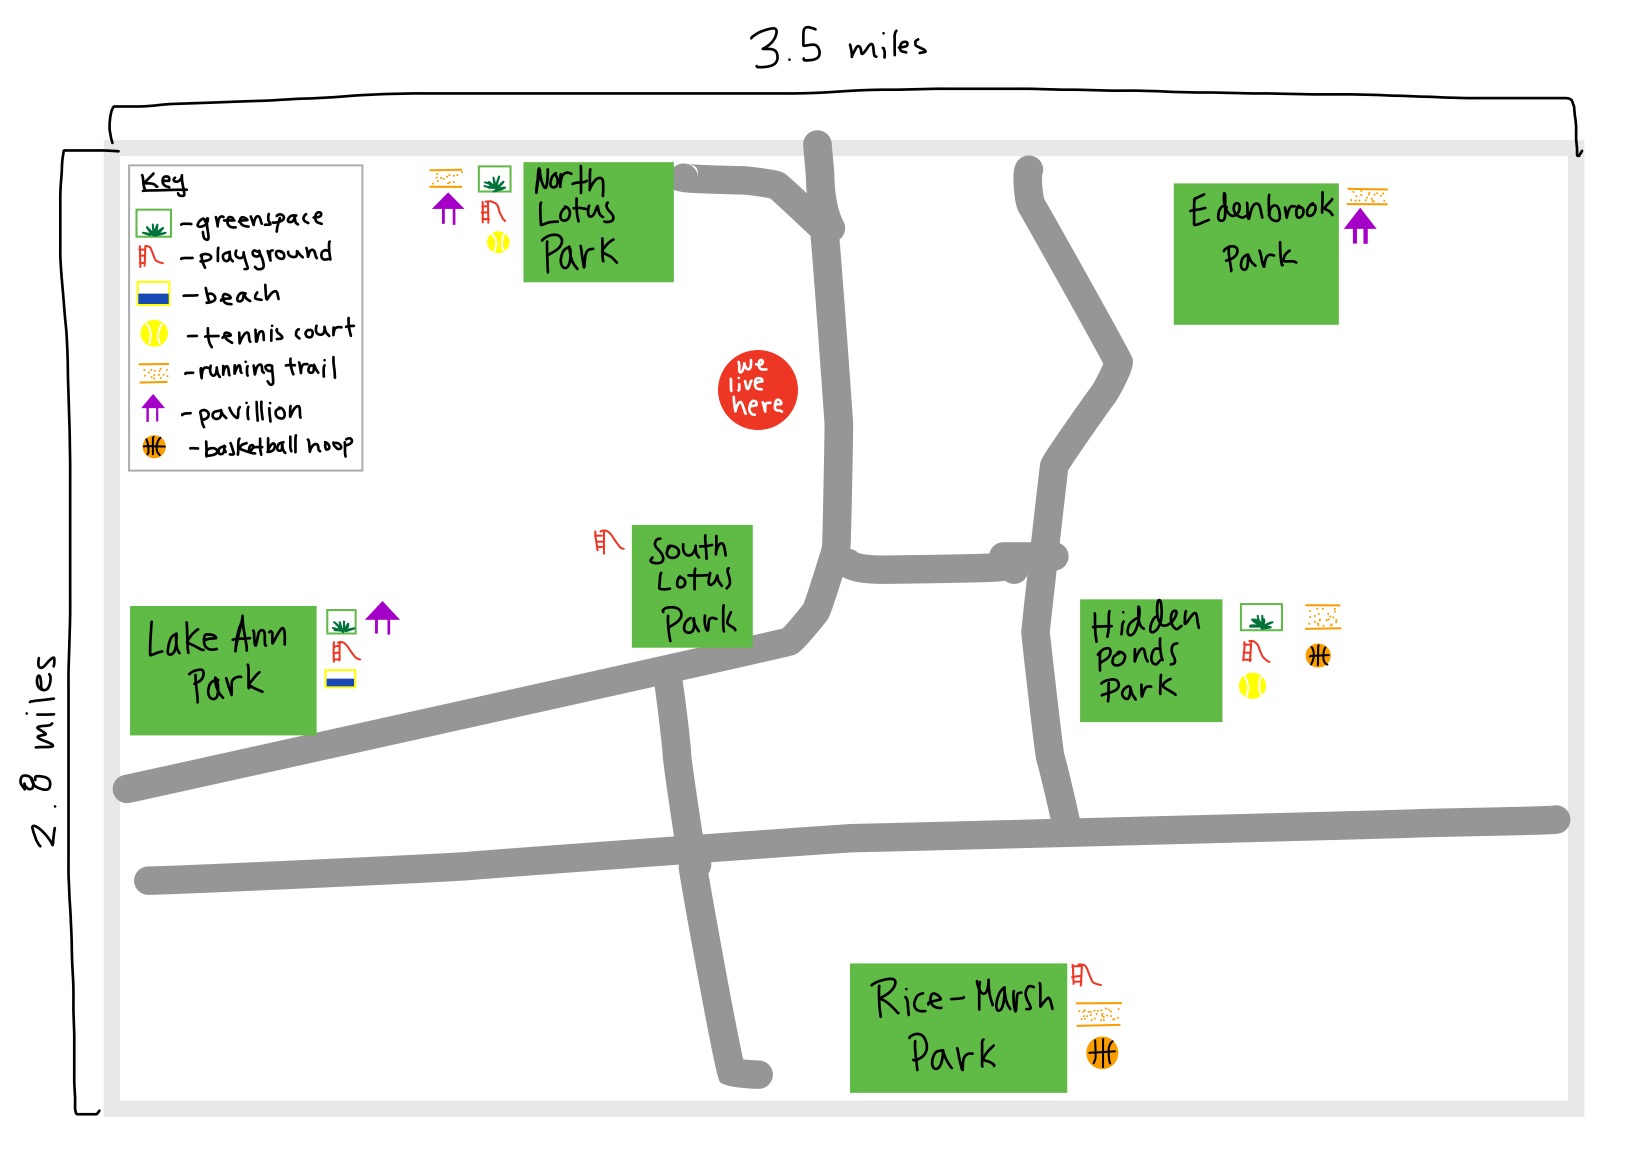 3.5 miles
2.8 miles
Key
-greenspace
-playground
-beach
-tennis court
-running trail
-pavillion
-basketball hoop
North
Lotus
Park
Edenbrook
Park
we
live
here
South
Lotus
Park
Lake Ann
Park
Hidden
Ponds
Park
Rice-Marsh
Park